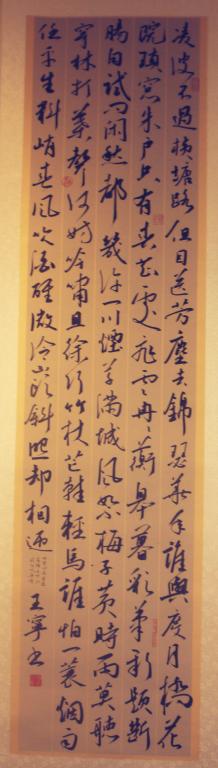 凌波不過橫塘路但目送芳塵去錦瑟華年誰與度月橋花
院瑣窓朱戶只有春知處飛雲冉冉蘅皋暮彩筆新題斷
腸句試問閑愁都幾許一川煙草滿城風絮梅子黃時雨莫聽
穿林打葉聲何妨吟嘯且徐行竹杖芒鞋輕馬誰怕一蓑烟雨
任平生料峭春風吹酒醒微冷山頭斜照却相迎
王寧書